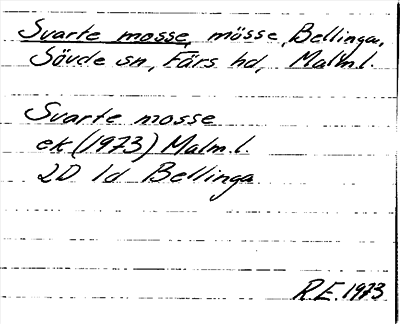 Svarte mosse, mosse, Bellinga,
Sövde sn, Färs hd, Malm.l.
Svarte mosse
ek (1973) Malm.l.
2D 1d Bellinga
R.E. 1973